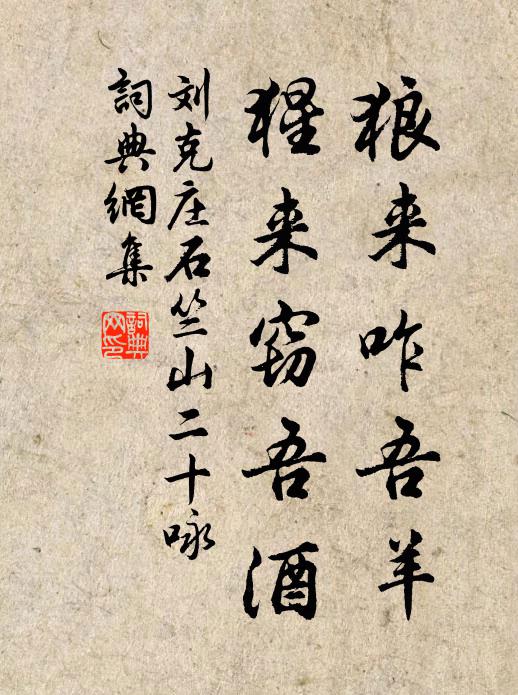 狼来咋吾羊
猩来窃吾酒
刘克庄石竺山二十咏
詞典網集
詞典
网印